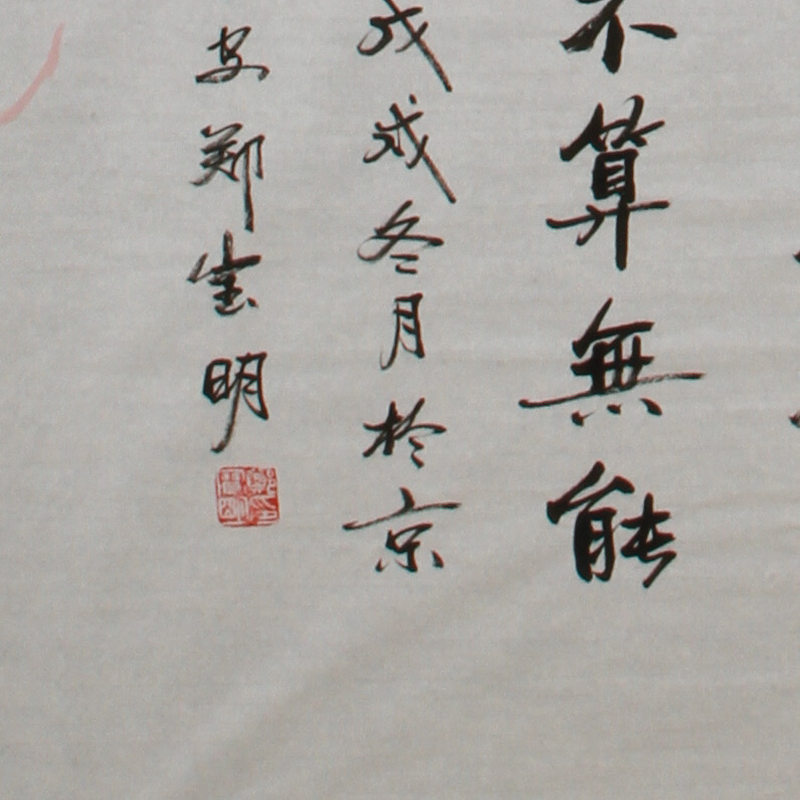 不算無能
戊戌冬月於京
安郑宝明